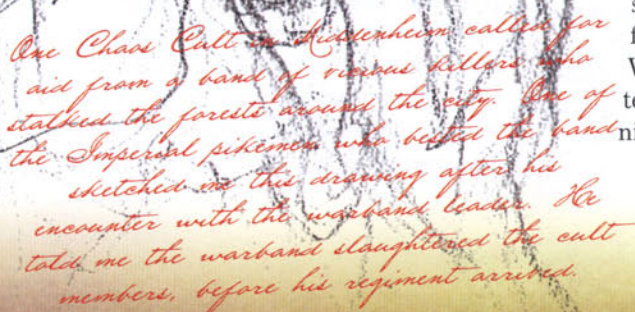 One Chaos Cult in Middenheim called for
aid from a band of vicious killers who
stalked the forests around the city. One of
the Imperial pikemen who bested the band
sketched me this drawing after his
encounter with the warband leader. He
told me the warband slaughtered the cult
members, before his regiment arrived.